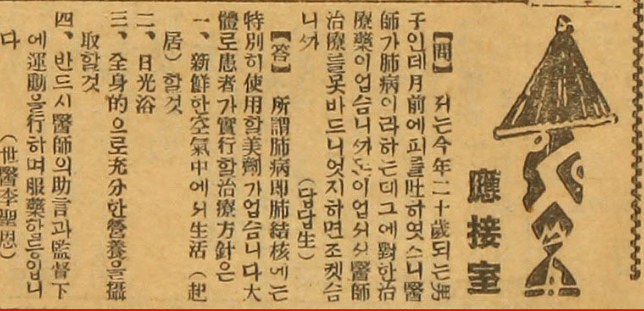 應接室
【問】 저는今年二十歲되는男
子인데月前에피를吐하엿스니醫
師가肺病이라하는데그에對한治
療藥이업슴니까돈이업서서醫師
治療를못바드니엇지하면조켓슴
니까 (답답生)
【答】 所謂肺病即肺結核에는
特別히使用할美劑가업슴니다大
體로患者가實行할治療方針은
一、新鮮한空氣中에서生活(起
居)할것
二、日光浴
三、全身的으로充分한營養을攝
取할것
四、반드시醫師의助言과監督下
에運動을行하며服藥할등임니
다 (世醫李聖恩)